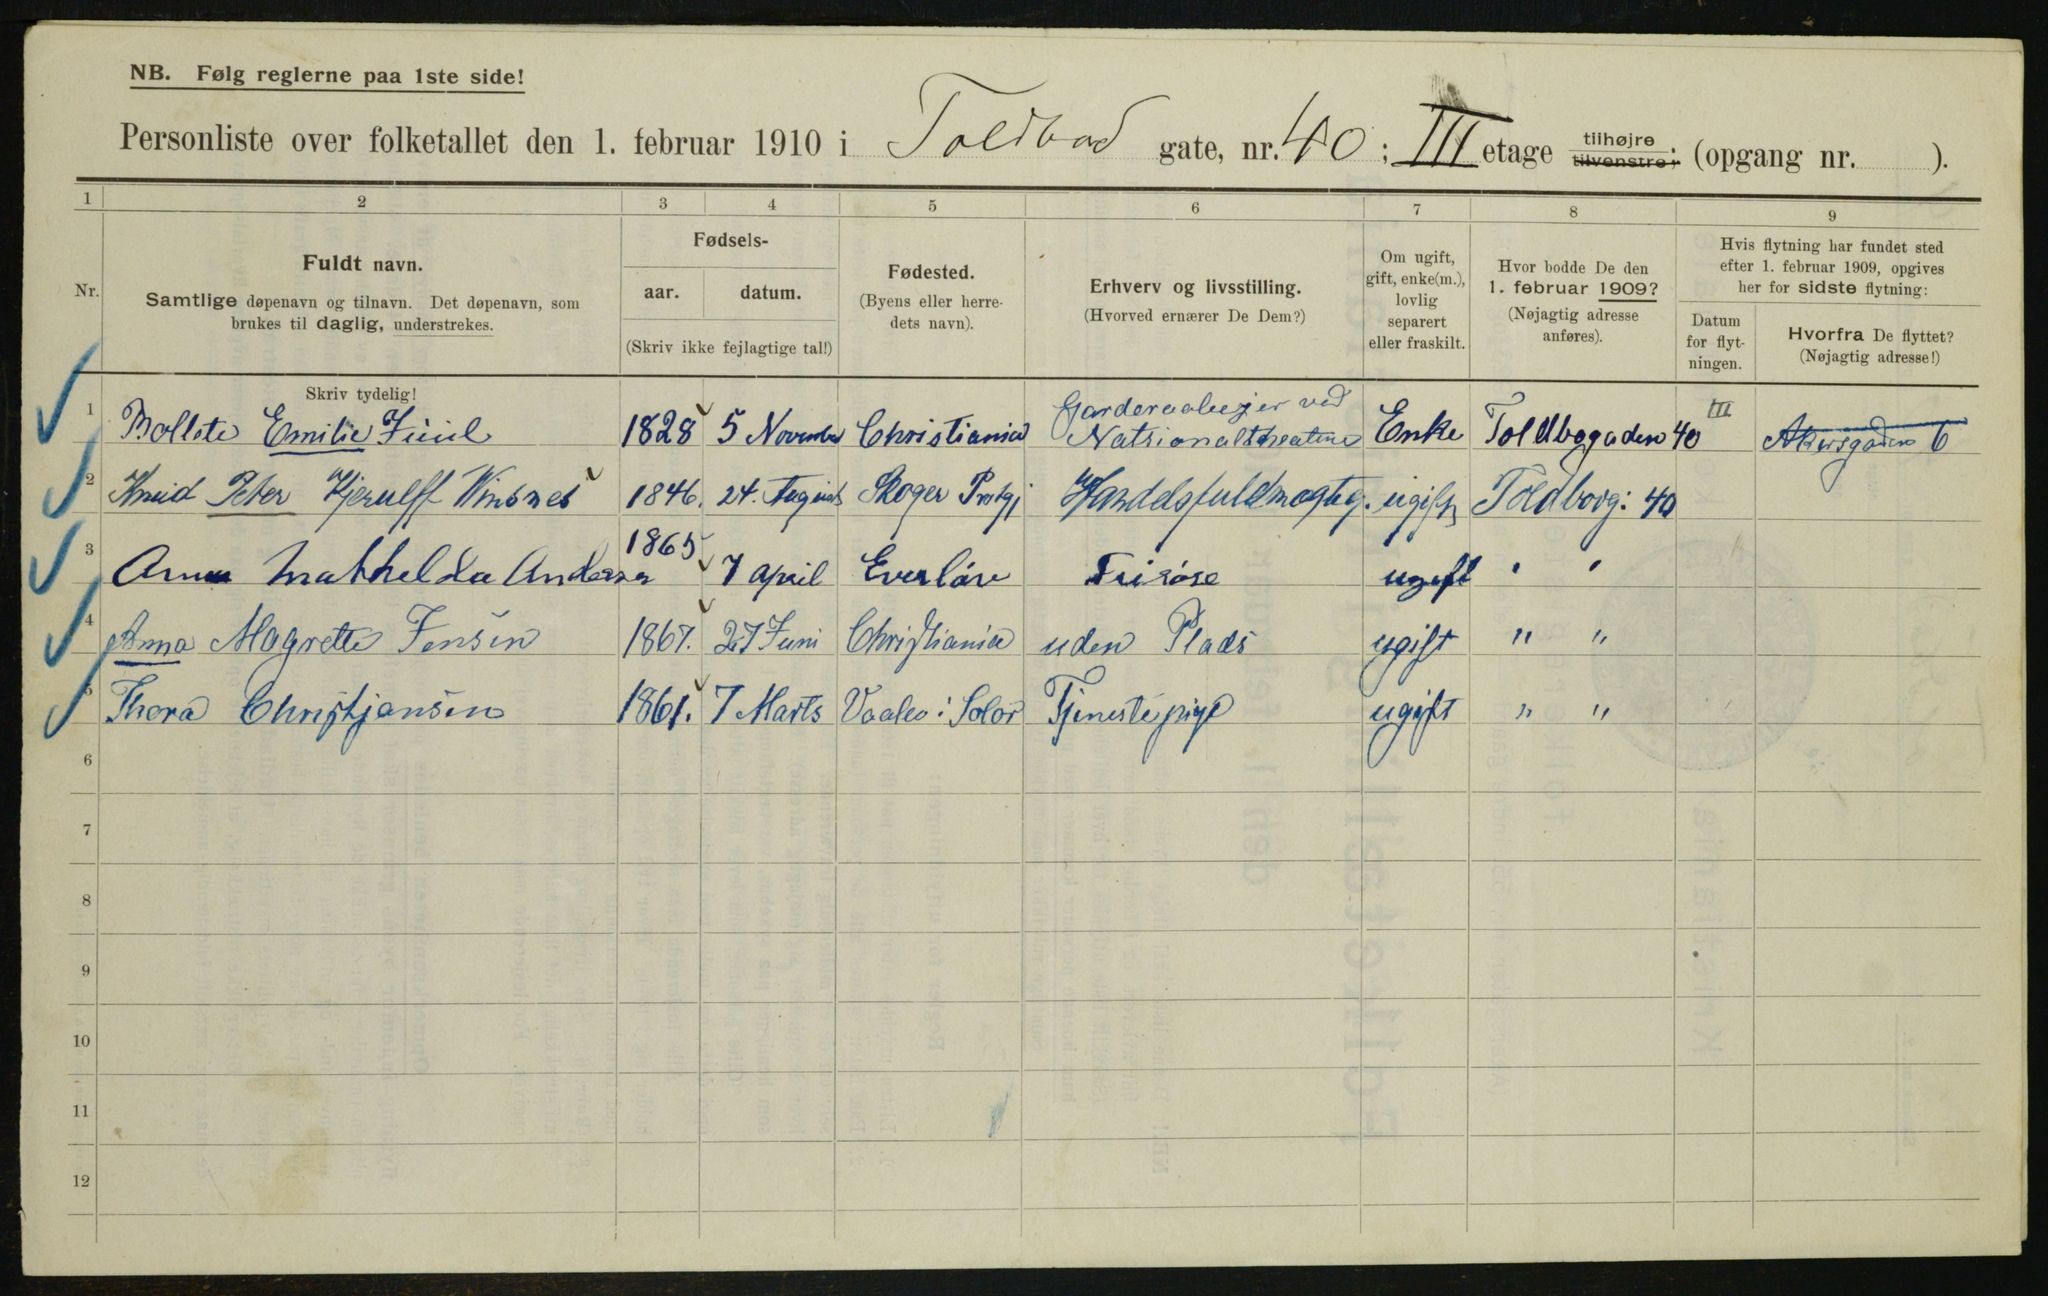 NB. Følg reglerne paa 1ste side!
Personliste over folketallet den 1. februar 1910 i Toldbod gate, nr. 40; III etage tilhøjre tilvenstre; (opgang nr. ).
1 2 3 4 5 6 7 8 9
Nr.
Fuldt navn.
Samtlige døpenavn og tilnavn. Det døpenavn, som
brukes til daglig, understrekes.
Fødsels-
aar. datum.
(Skriv ikke fejlagtige tal!)
Fødested.
(Byens eller herre-
dets navn).
Erhverv og livsstilling.
(Hvorved ernærer De Dem?)
Om ugift,
gift, enke(m.),
lovlig
separert
eller fraskilt.
Hvor bodde De den
1. februar 1909?
(Nøjagtig adresse
anføres).
Hvis flytning har fundet sted
efter 1. februar 1909, opgives
her for sidste flytning:
Datum
for flyt-
ningen.
Hvorfra De flyttet?
(Nøjagtig adresse!)
Skriv tydelig!
1 Bollette Emilie Juul 1828 5 November Christiania Garderobeejer ved Nationaltheatret Enke Toldbogaden 40 III Akersgaden 6
2 Knud Peter Kjerulff Winsnes 1846. 24. August Skoger Prstgj Handelsfuldmægtig. ugift Toldbog: 40
3 Anna Mathelda Andersen 1865 7 April Everløv Frisøse ugift " "
4 Anna Magrette Jensen 1867. 27 Juni Christiania uden Plads ugift " "
5 Thora Christjansen 1861. 7 Marts Vaaler i Solør Tjenestepige ugift " "
6
7
8
9
10
11
12